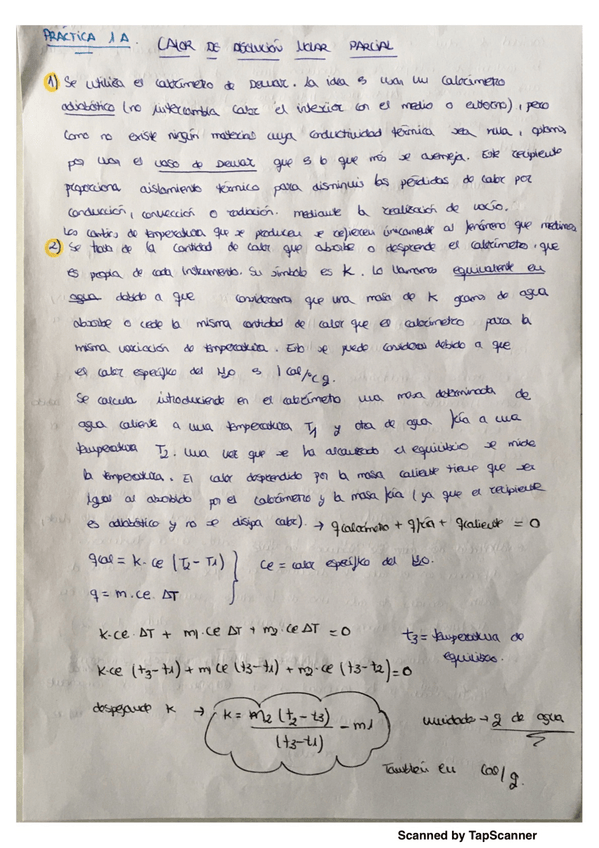 PRÁCTICA 1A. CALOR DE DISOLUCIÓN MOLAR PARCIAL
1) Se utiliza el calorímetro de Dewar. La idea es usar un calorímetro
adiabático (no intercambia calor el interior con el medio o entorno), pero
como no existe ningún material cuya conductividad térmica sea nula, optamos
por usar el vaso de Dewar que es lo que más se asemeja. Este recipiente
proporciona aislamiento térmico para disminuir las pérdidas de calor por
conducción, convección o radiación. mediante la realización de vacío.
Los cambios de temperatura que se producen se refieren únicamente al fenómeno que medimos
2) Se trata de la cantidad de calor que absorbe o desprende el calorímetro, que
es propia de cada instrumento. Su símbolo es K. Lo llamamos equivalente en
agua debido a que consideramos que una masa de K gramos de agua
absorbe o cede la misma cantidad de calor que el calorímetro para la
misma variación de temperatura. Esto se puede considerar debido a que
el calor específico del H2O es 1 cal/ºC g.
Se calcula introduciendo en el calorímetro una masa determinada de
agua caliente a una temperatura T1 y otra de agua fría a una
temperatura T2. Una vez que se ha alcanzado el equilibrio se mide
la temperatura. El calor desprendido por la masa caliente tiene que ser
igual al absorbido por el calorímetro y la masa fría (ya que el recipiente
es adiabático y no se disipa calor). → qcalorímetro + qfría + qcaliente = 0
qcal = K · ce (T2 - T1)
ce = calor específico del H2O.
q = m · ce · ΔT
K · ce · ΔT + m1 · ce ΔT + m2 · ce ΔT = 0
t3 = temperatura de
equilibrio.
K · ce (t3 - t1) + m1 ce (t3 - t1) + m2 · ce (t3 - t2) = 0
despejando K → K = m2 (t2 - t3) / (t3 - t1) - m1
unidades → g de agua
También en cal/g.
Scanned by TapScanner